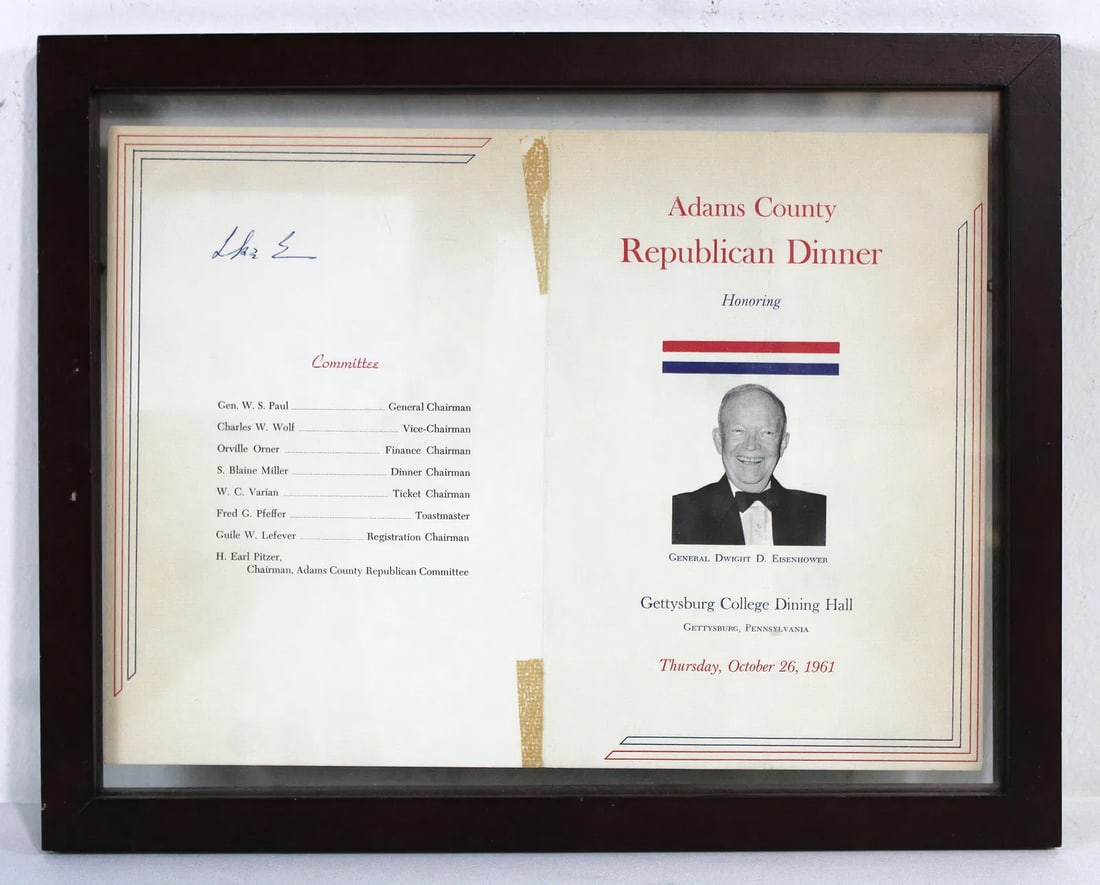 Ike E
Committee
Gen. W. S. Paul ........................ General Chairman
Charles W. Wolf ........................ Vice-Chairman
Orville Orner ........................ Finance Chairman
S. Blaine Miller ........................ Dinner Chairman
W. C. Varian ........................ Ticket Chairman
Fred G. Pfeffer ........................ Toastmaster
Guile W. Lefever ........................ Registration Chairman
H. Earl Pitzer,
Chairman, Adams County Republican Committee
Adams County
Republican Dinner
Honoring
General Dwight D. Eisenhower
Gettysburg College Dining Hall
Gettysburg, Pennsylvania
Thursday, October 26, 1961